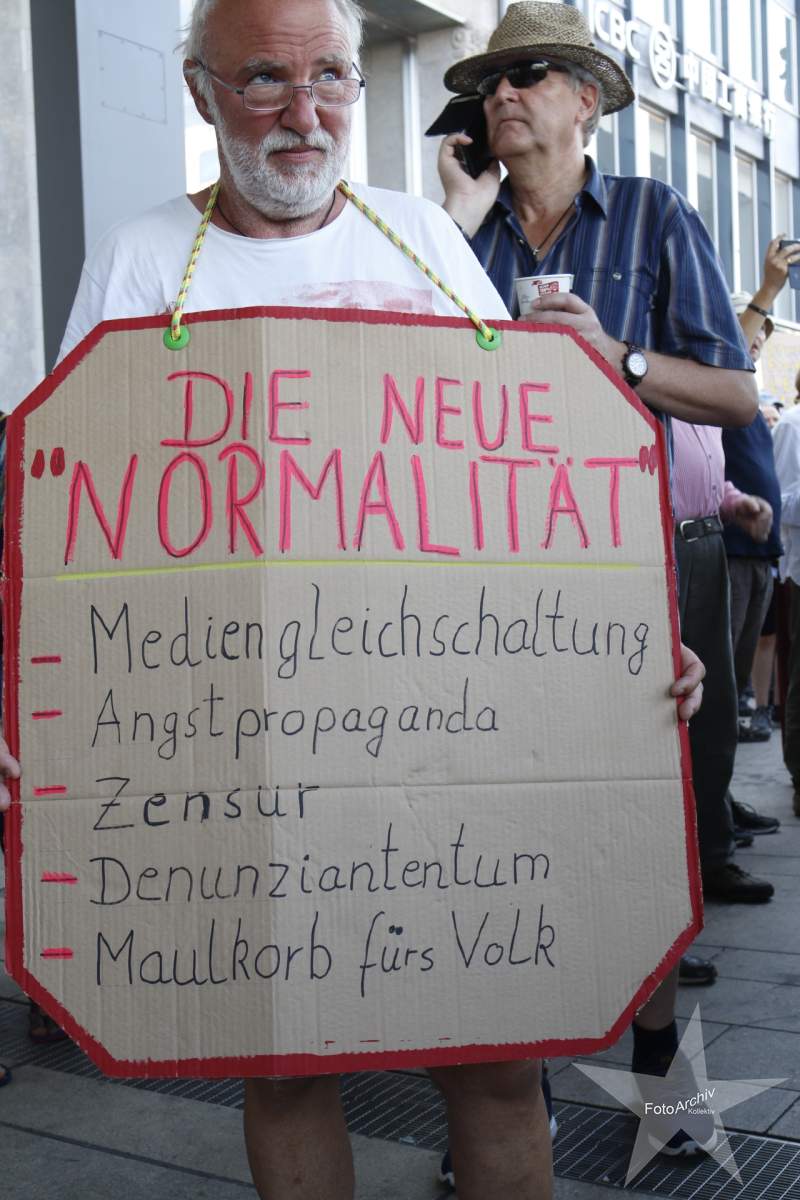 ICBC 中国工商银行
DIE NEUE
"NORMALITÄT"
- Mediengleichschaltung
- Angstpropaganda
- Zensur
- Denunziantentum
- Maulkorb fürs Volk
FotoArchiv
Kollektiv